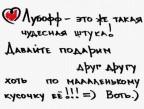 Лубофф - это же такая
чудесная штука!
Давайте подарим
друг другу
хоть по мааааленькому
кусочку её!!! =) Воть.)